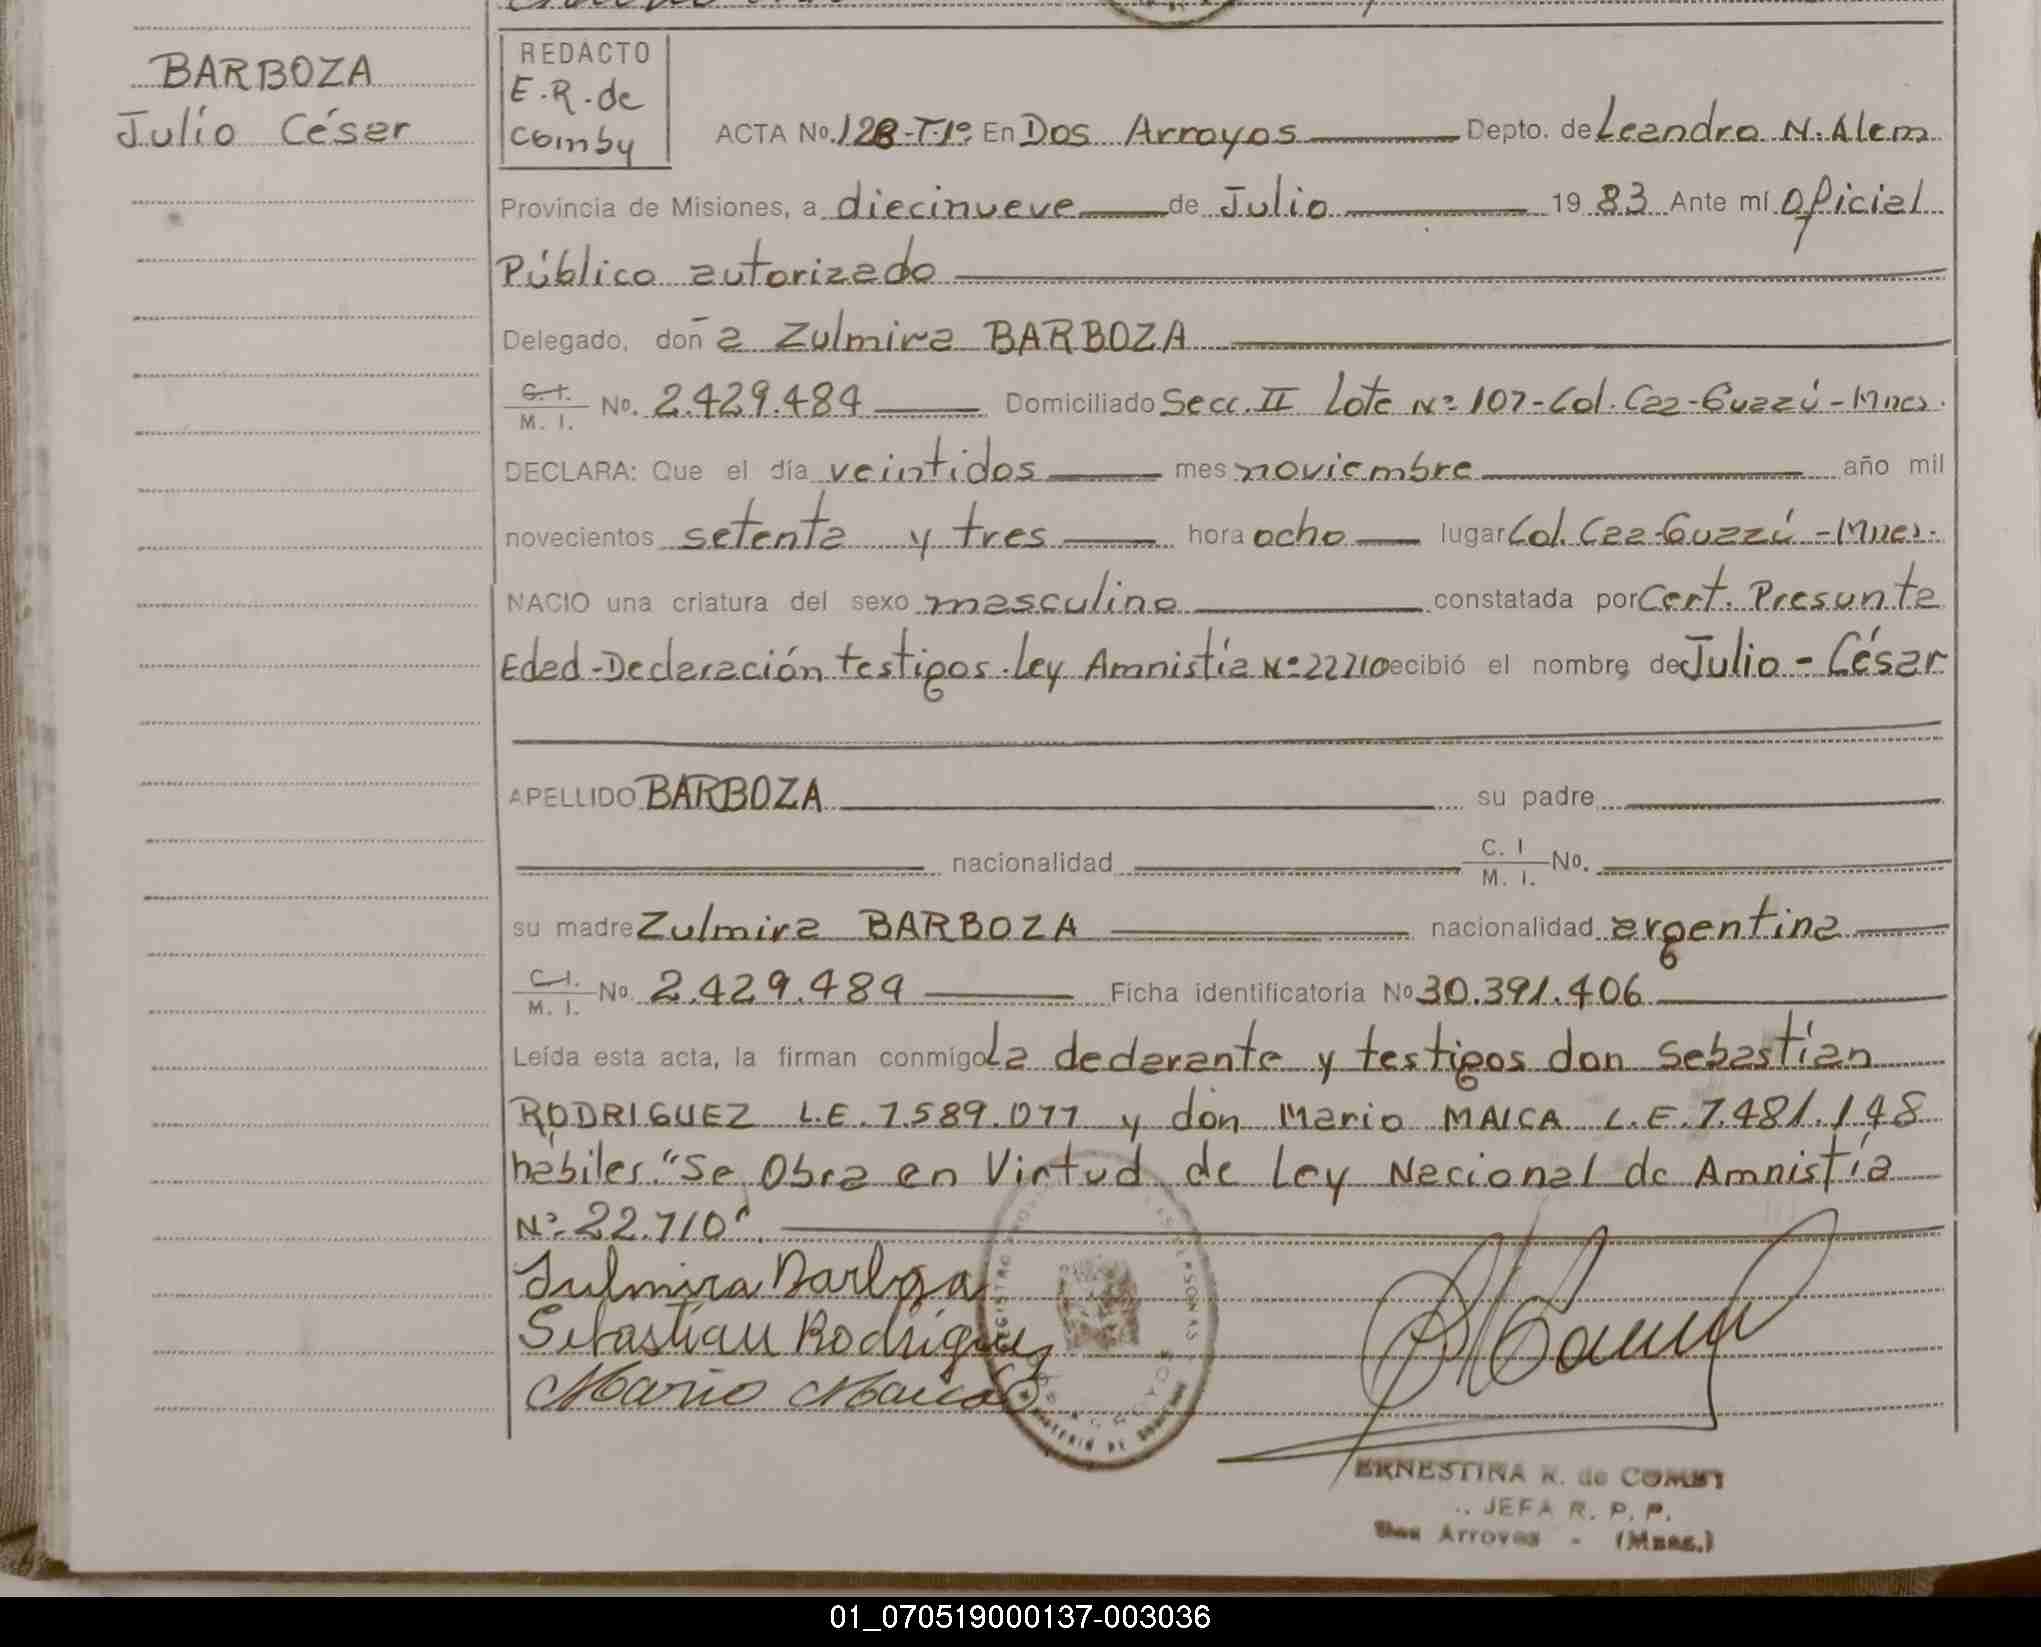 BARBOZA
Julio César
REDACTO
E.R. de
Comby
ACTA No. 128-T.1º. En Dos Arroyos Depto. de Leandro N. Alem
Provincia de Misiones, a diecinueve de Julio 19 83 Ante mí Oficial
Público autorizado
Delegado, doña Zulmira BARBOZA
C. I. M. I. No. 2.429.484 Domiciliado Secc. II Lote Nº 107-Col. Caa-Guazzú-Mnes.
DECLARA: Que el día veintidos mes noviembre año mil
novecientos setenta y tres hora ocho lugar Col. Caa-Guazzú-Mnes.
NACIO una criatura del sexo masculino constatada por Cert. Presunta
Edad-Declaración testigos. Ley Amnistía Nº 22710 ecibió el nombre de Julio-César
APELLIDO BARBOZA su padre
nacionalidad C. I M. I. No.
su madre Zulmira BARBOZA nacionalidad argentina
C. I. M. I. No. 2.429.484 Ficha identificatoria No 30.391.406
Leída esta acta, la firman conmigo la declarante y testigos don Sebastían
RODRIGUEZ L.E. 7.589.077 y don Mario MAICA L.E. 7.481.148
hábiles. "Se Obra en Virtud de Ley Nacional de Amnistía
Nº 22.710".
Zulmira Barboza
Sebastian Rodriguez
Mario Maica
ERNESTINA R. de COMBY
JEFA R. P. P.
Dos Arroyos - (Mnes.)
01_070519000137-003036